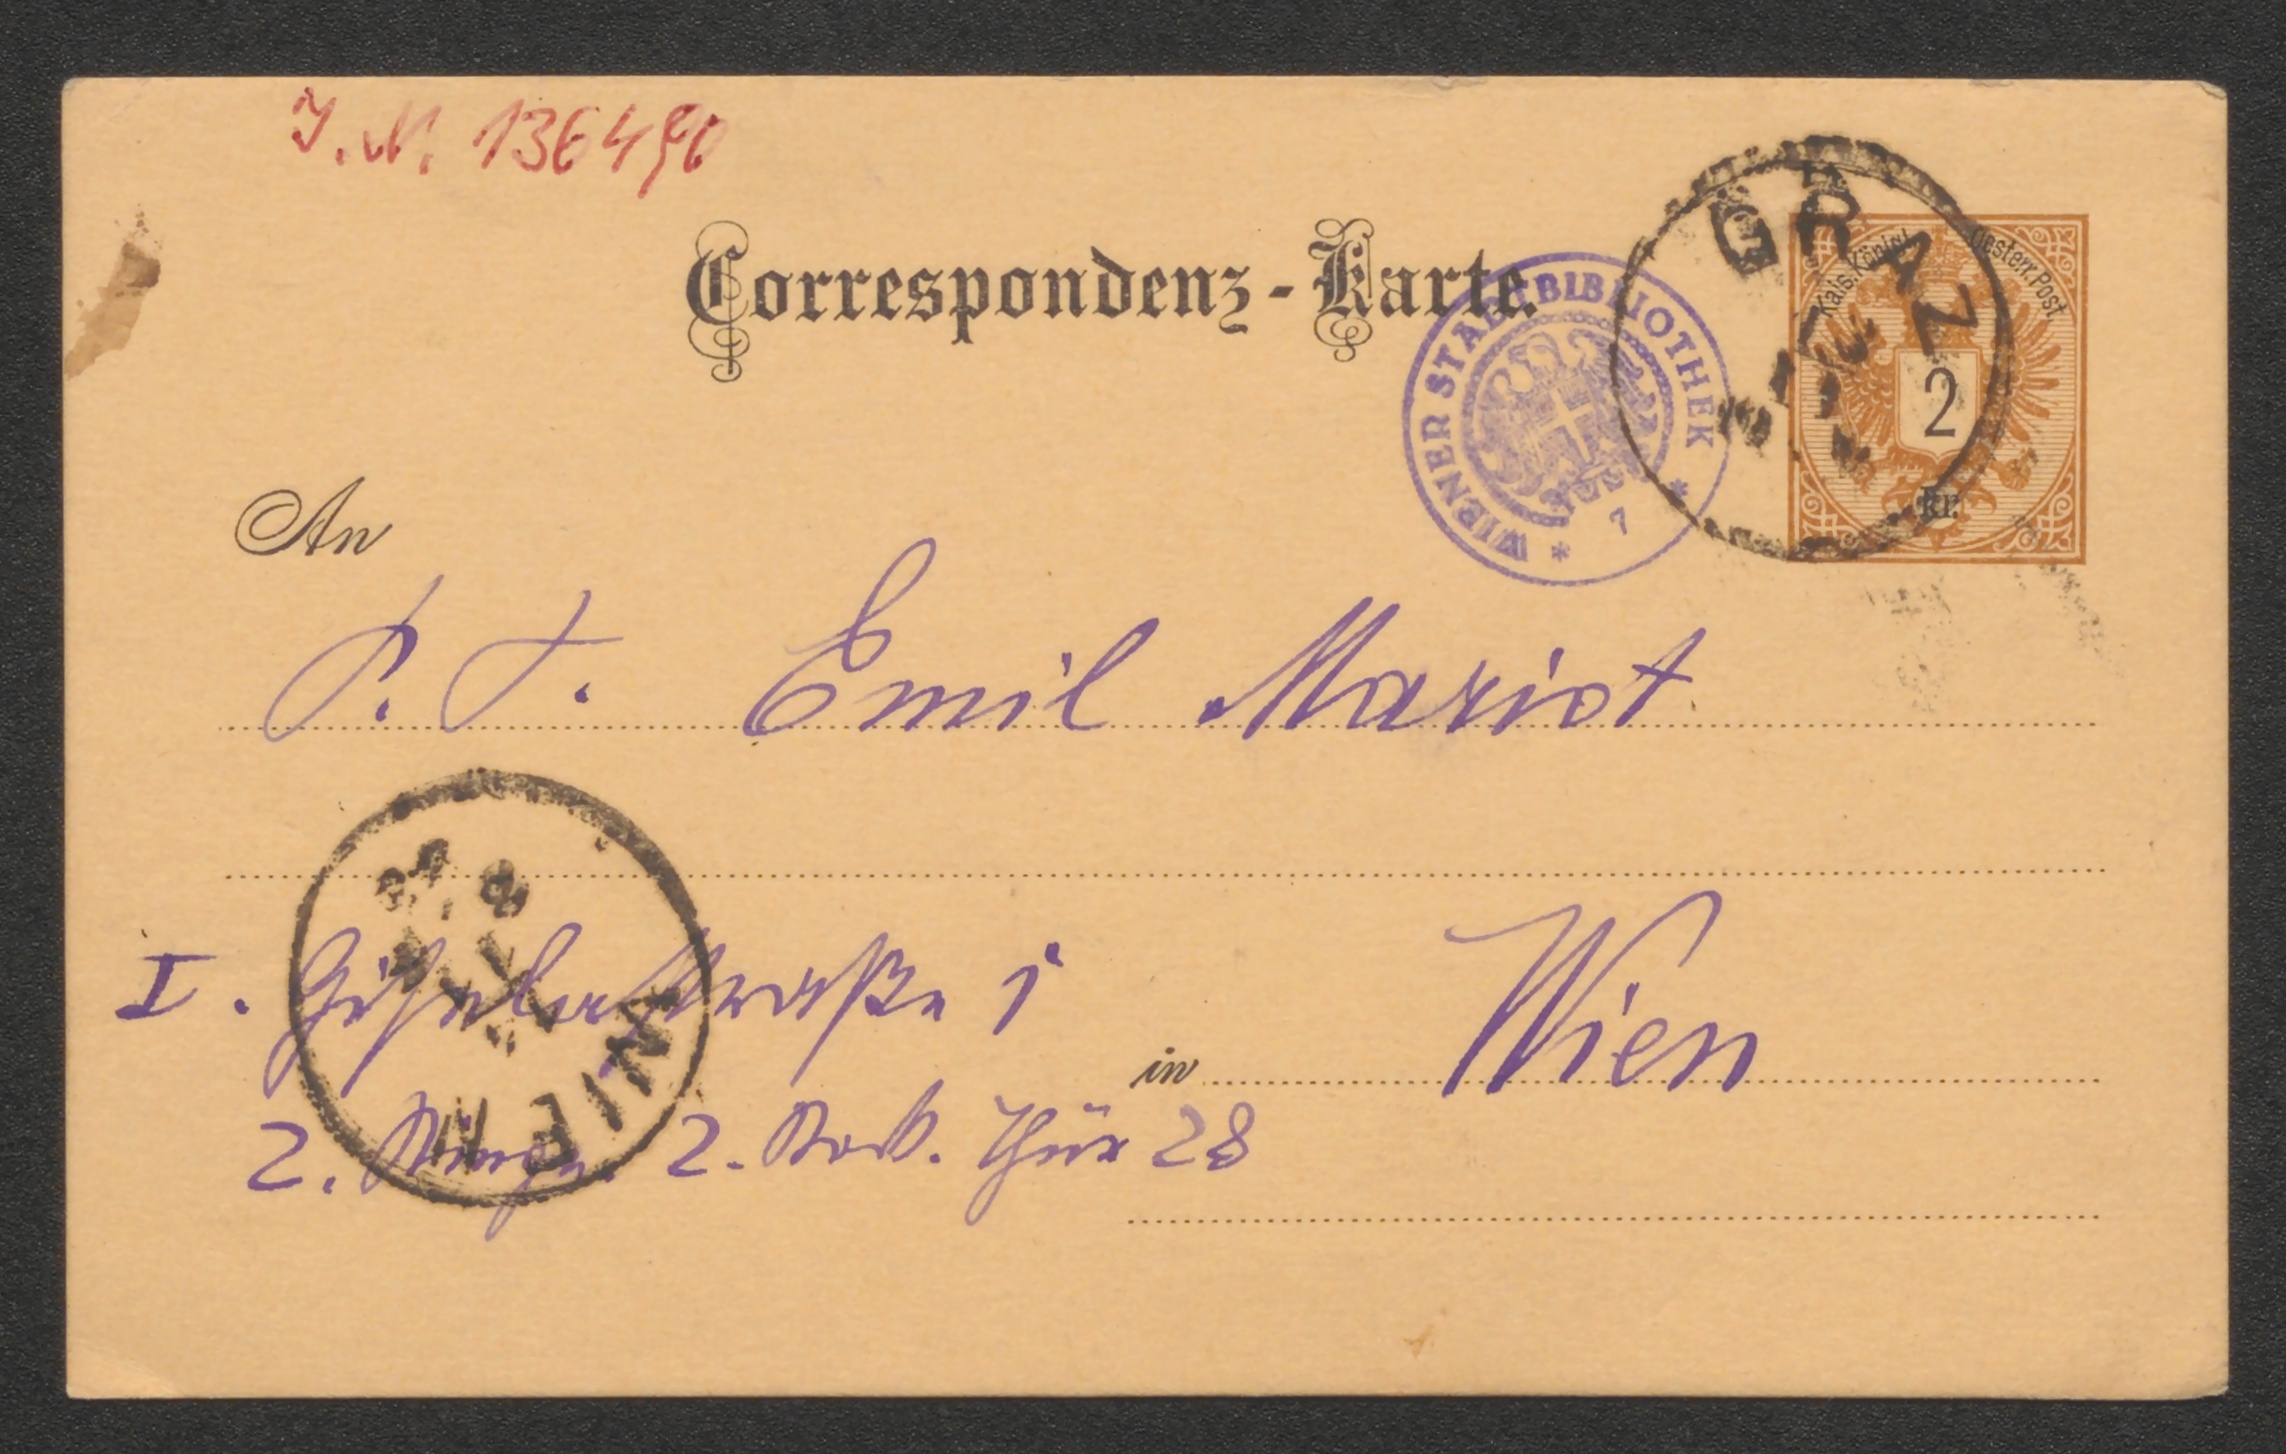 J. N. 136490
Correspondenz-Karte.
GRAZ
Kais. Königl. Oesterr. Post
2
kr.
WIENER STADTBIBLIOTHEK
7
An
P. T. Emil Mariot
I. Giselastraße 1
in Wien
2. Stiege. 2. Stock. Thür 28
WIEN